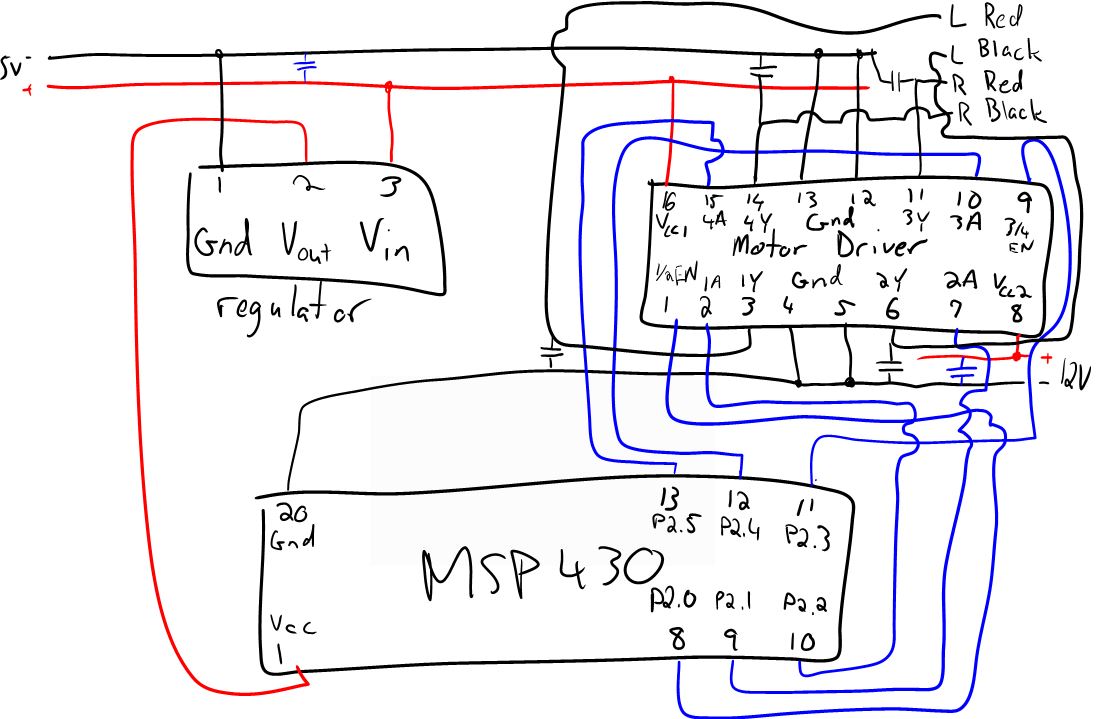 L Red
5v -
L Black
+
R Red
R Black
1 2 3
Gnd Vout Vin
regulator
16 15 14 13 12 11 10 9
Vcc1 4A 4Y Gnd 3Y 3A 3/4 EN
Motor Driver
1/2EN 1A 1Y Gnd 2Y 2A Vcc2
1 2 3 4 5 6 7 8
+
- 12V
20 13 12 11
Gnd P2.5 P2.4 P2.3
MSP430
P2.0 P2.1 P2.2
Vcc
1 8 9 10